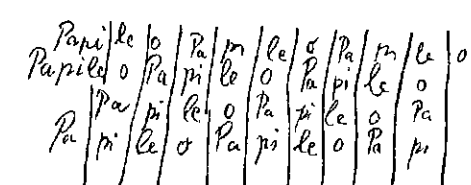 Papi|le|o|Pa|pi|le|o|Pa|pi|le|o
Papile|o|Pa|pi|le|o|Pa|pi|le|o
Pa|pi|le|o|Pa|pi|le|o|Pa
Pa|pi|le|o|Pa|pi|le|o|Pa|pi